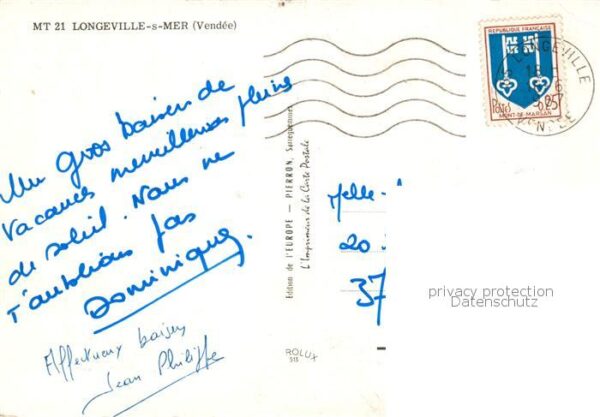 MT 21 LONGEVILLE-s-MER (Vendée)
Un gros baiser de
vacances merveilleuses pleine
de soleil. Nous ne
t'oublions pas
Dominique.
Affectueux baisers
Jean Philippe
Edition de l'EUROPE — PIERRON, Sarreguemines
L'Imprimeur de la Carte Postale
ROLUX
REPUBLIQUE FRANÇAISE
Postes 0,25
MONT-DE-MARSAN
LONGEVILLE
18 H
VENDEE
Melle
20
37
privacy protection
Datenschutz